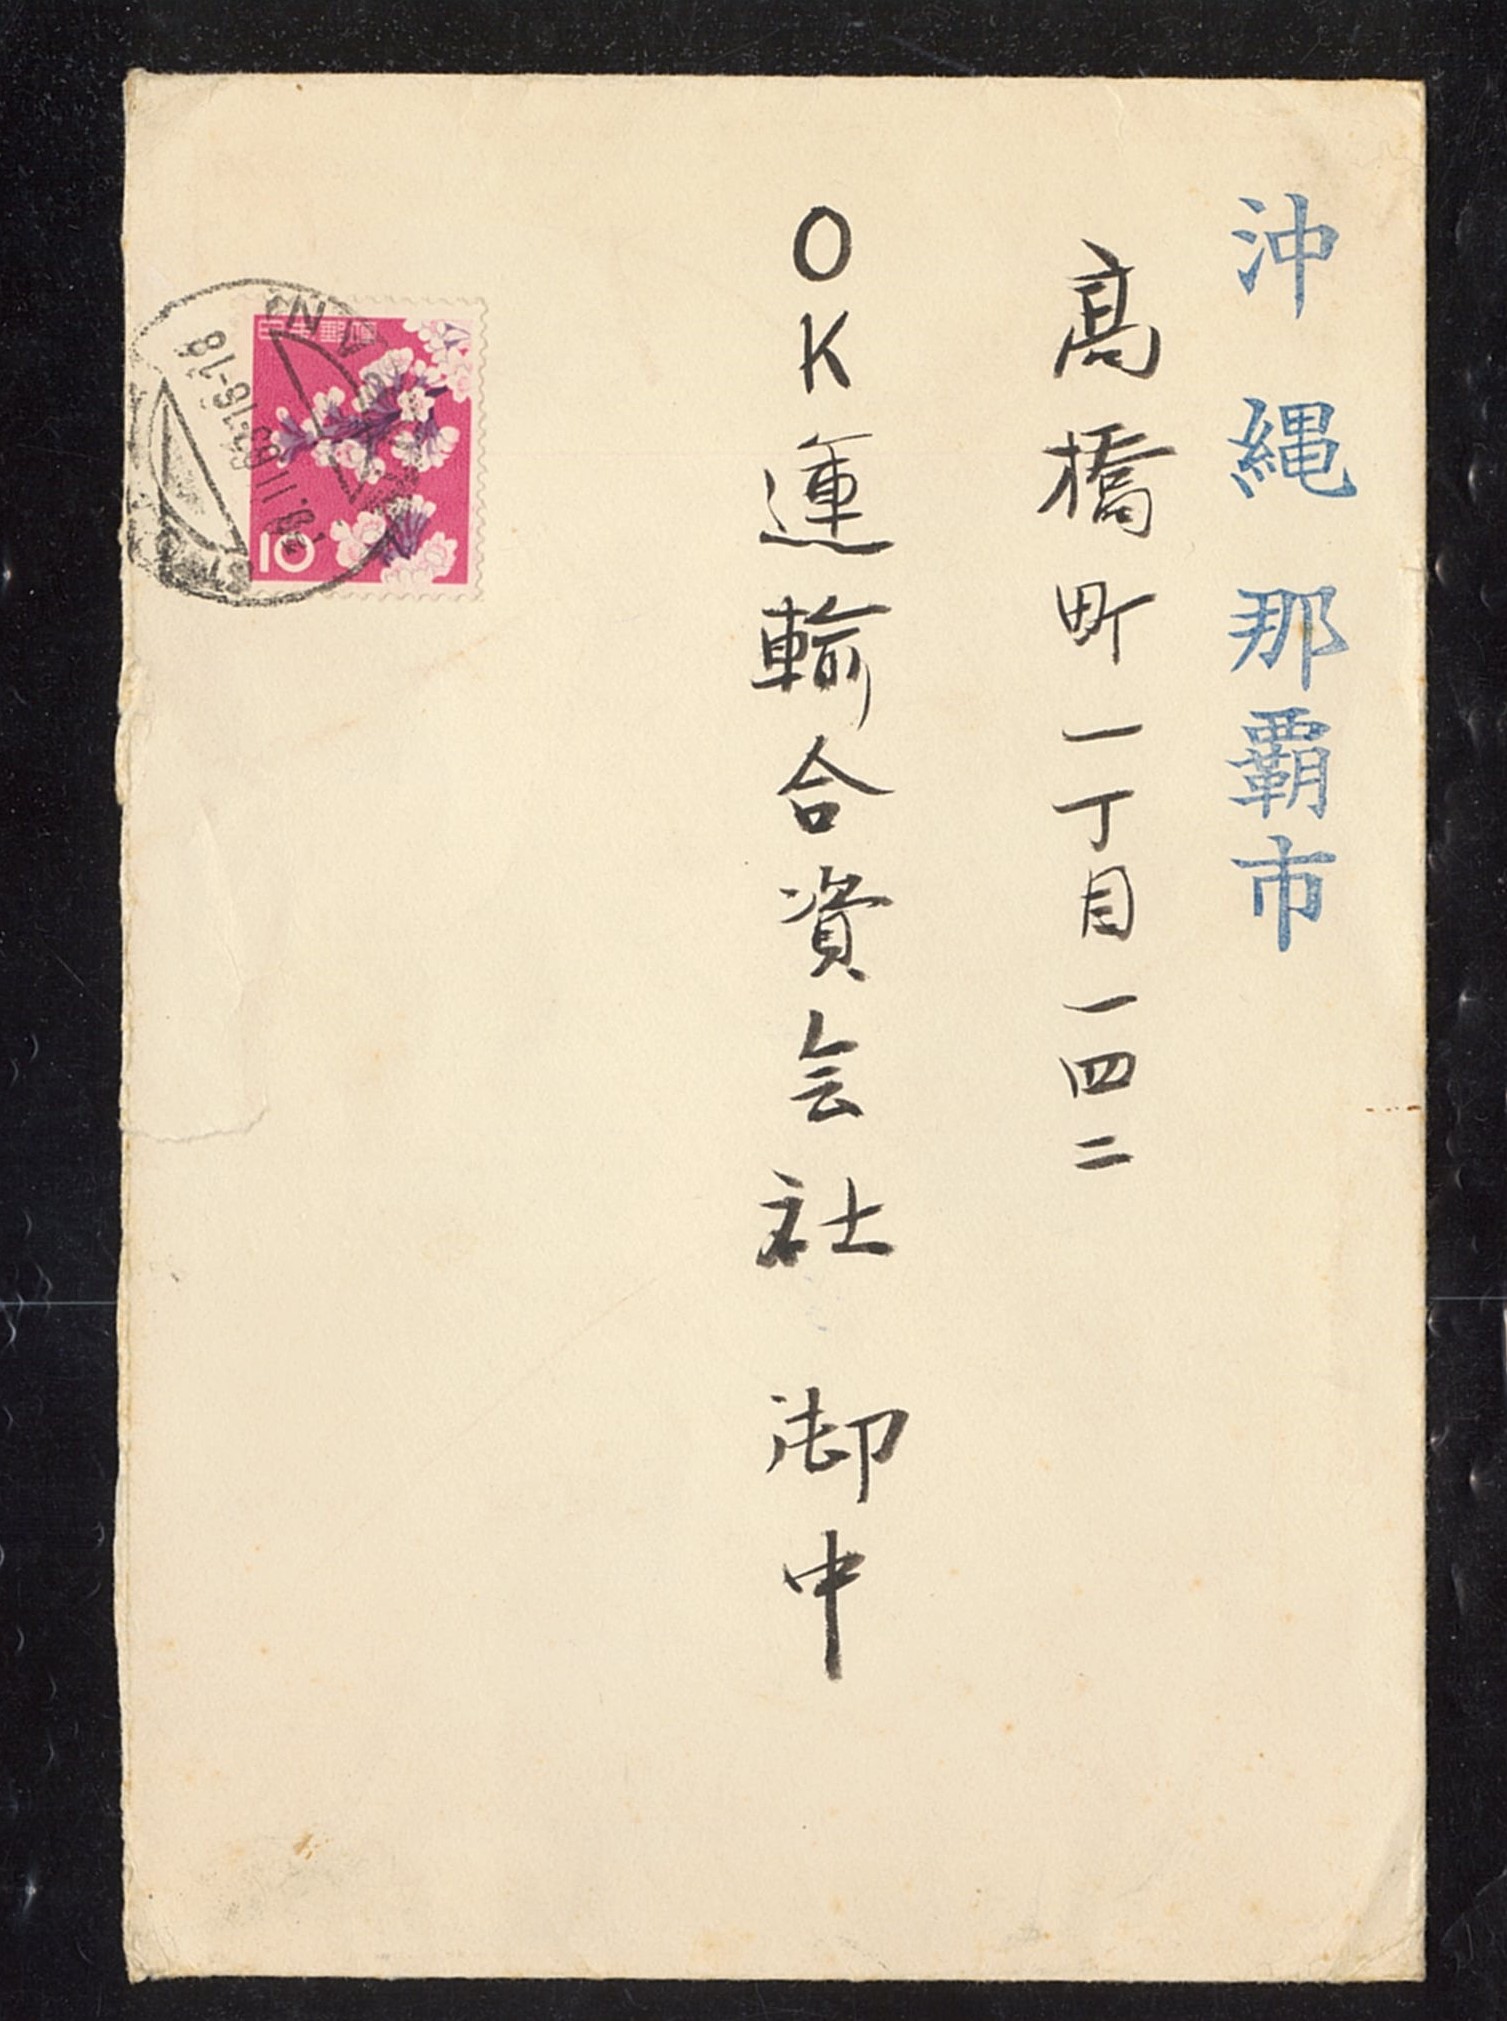 沖縄那覇市
高橋町一丁目一四二
OK運輸合資会社 御中
日本郵便
10